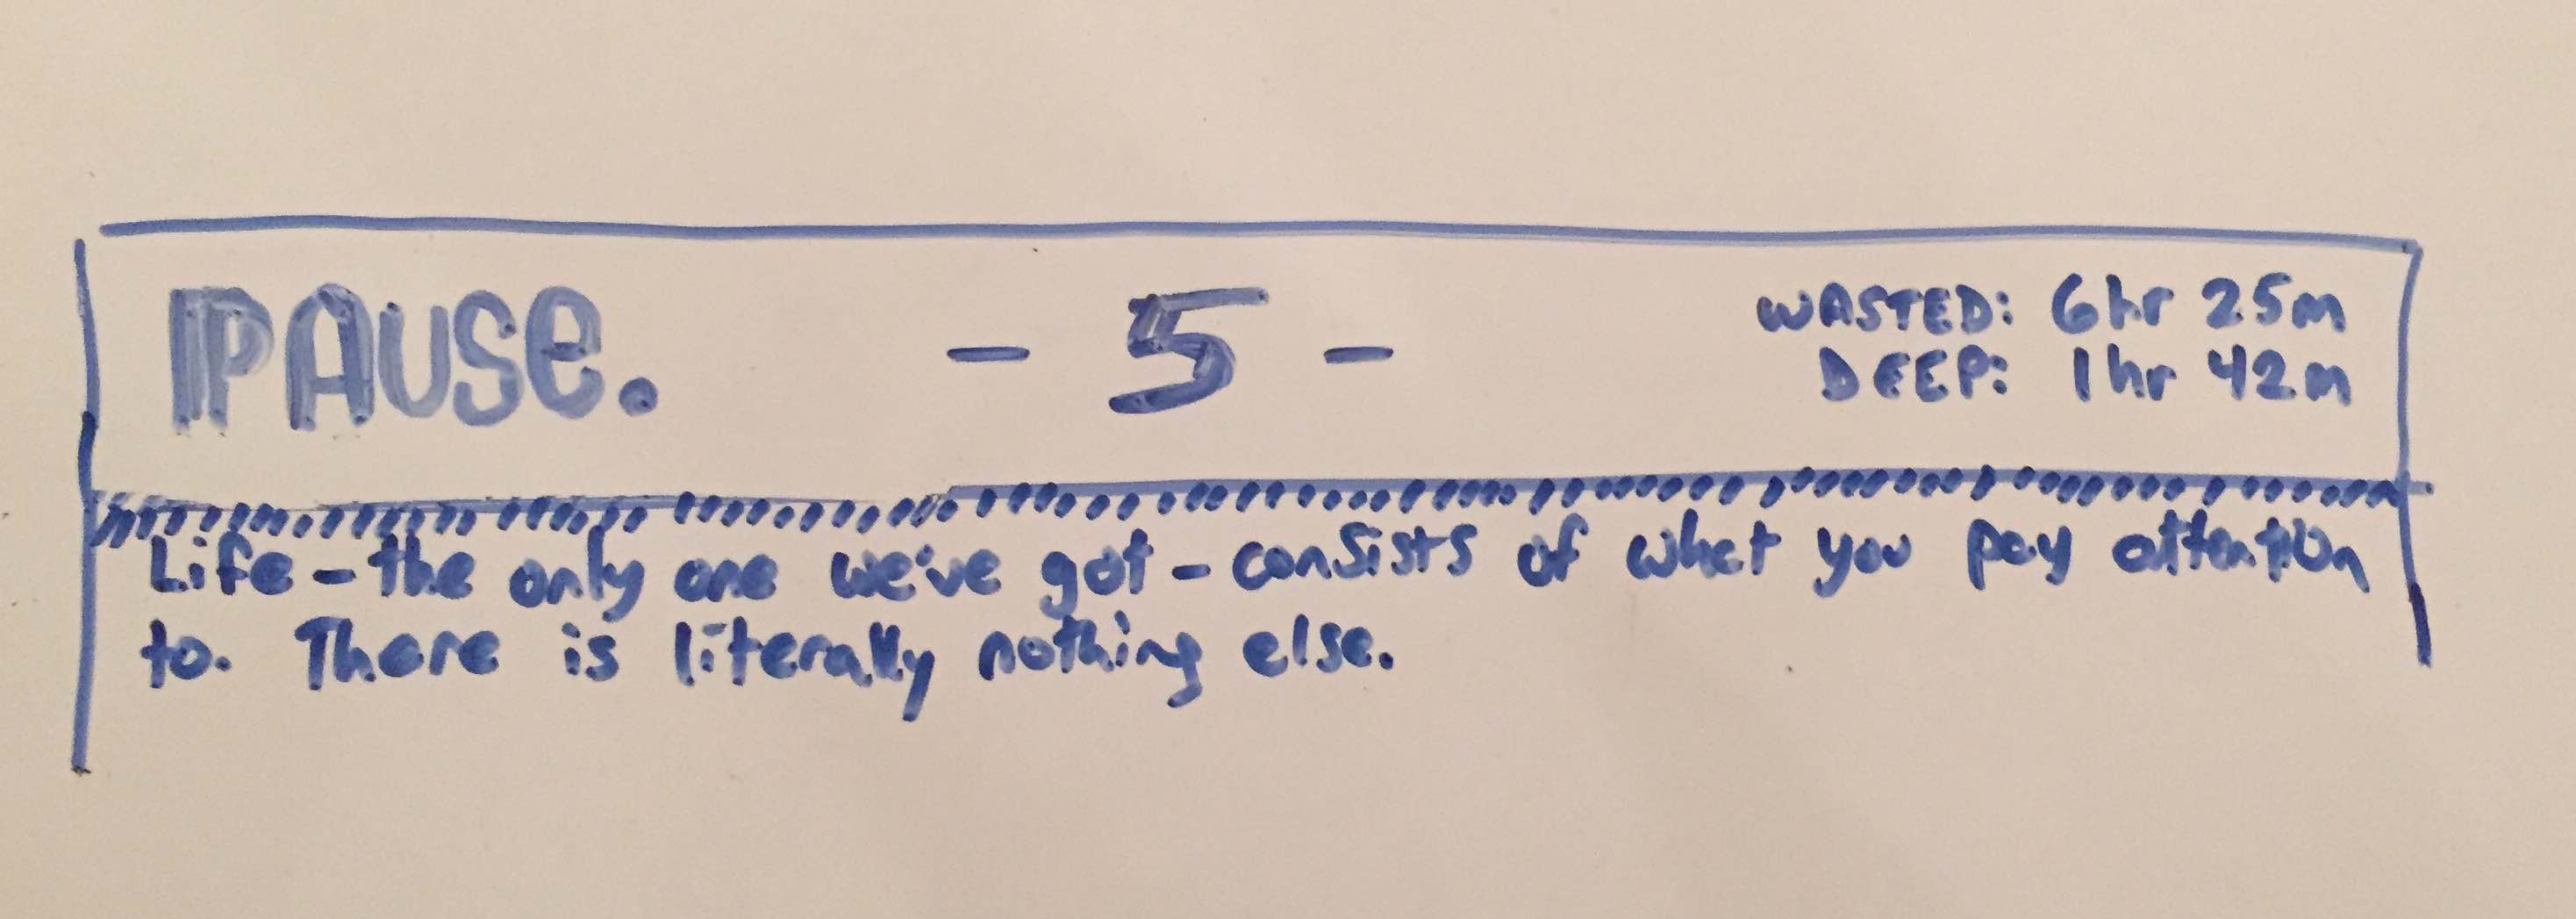 PAUSE. - 5 - WASTED: 6hr 25m
DEEP: 1hr 42m
Life - the only one we've got - consists of what you pay attention
to. There is literally nothing else.